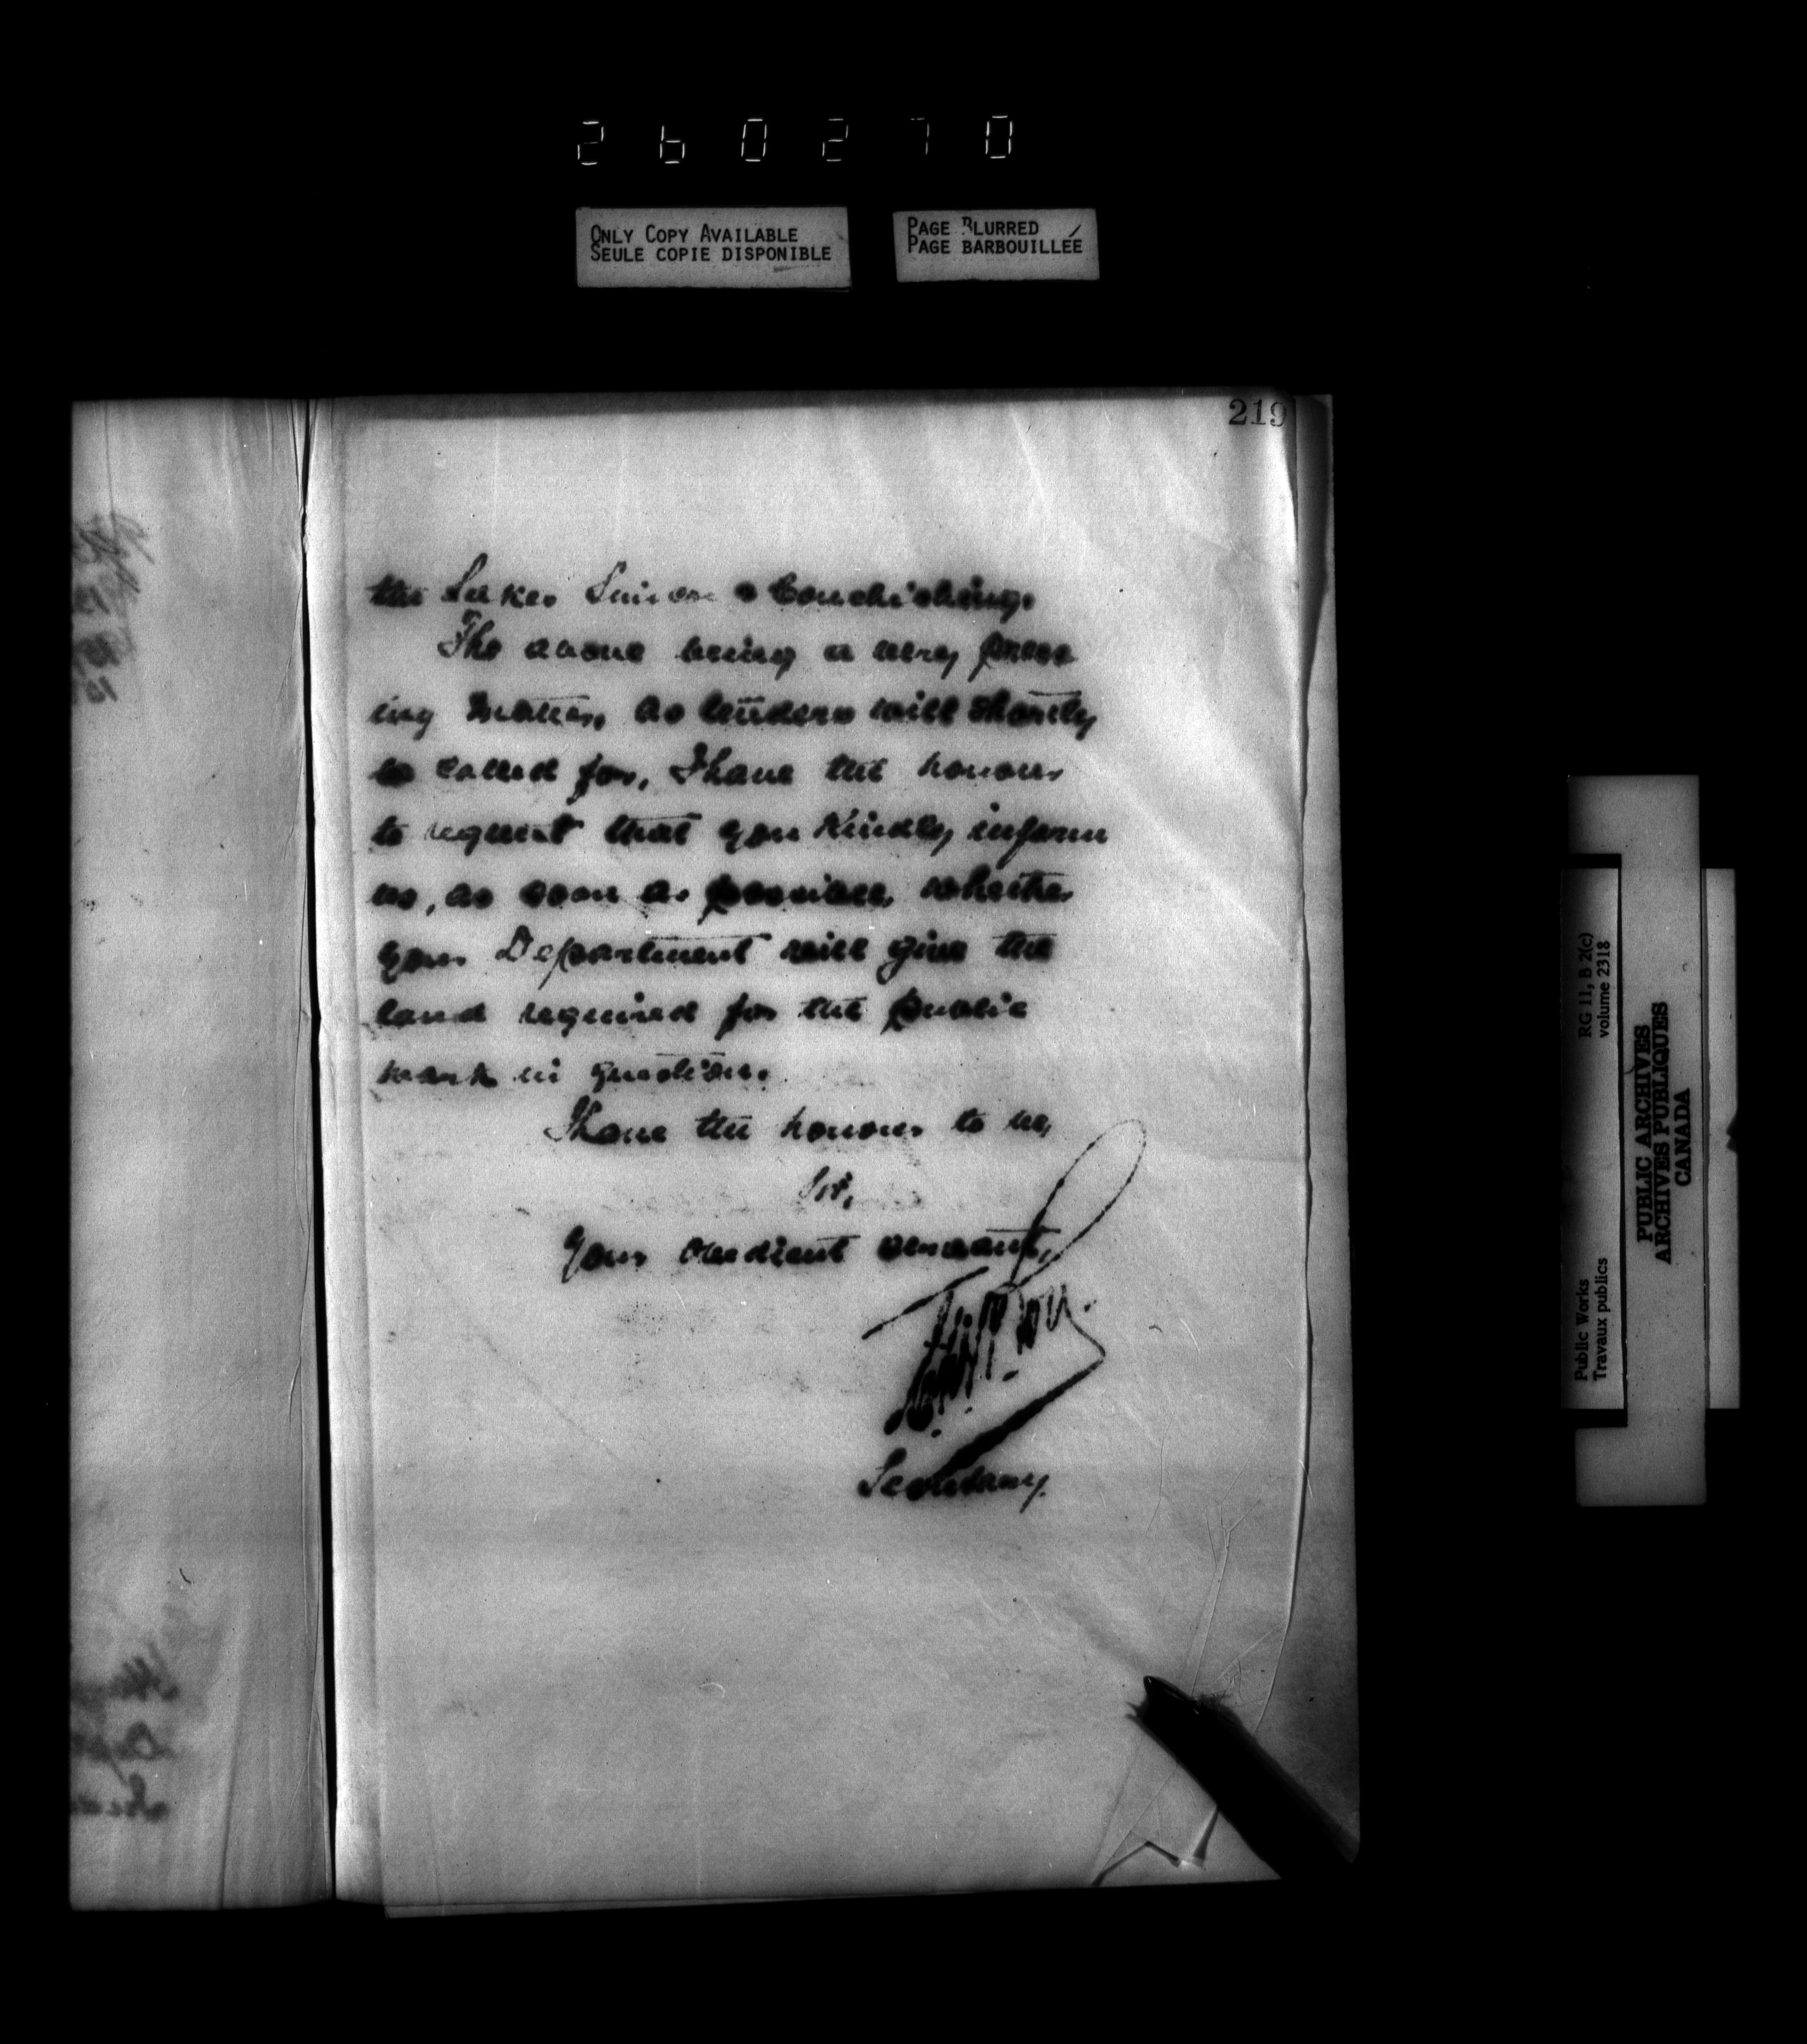 260270
ONLY COPY AVAILABLE
SEULE COPIE DISPONIBLE
PAGE BLURRED
PAGE BARBOUILLÉE
219
the Lakes Simcoe & Couchiching.
The above being a very press
ing matter, as tenders will shortly
be called for, I have the honour
to request that you kindly inform
us, as soon as possible, whether
your Department will give the
land required for the public
work in question.
I have the honour to be,
Sir,
Your obedient servant,
Secretary.
RG 11, B 2(c)
volume 2318
Public Works
Travaux publics
PUBLIC ARCHIVES
ARCHIVES PUBLIQUES
CANADA